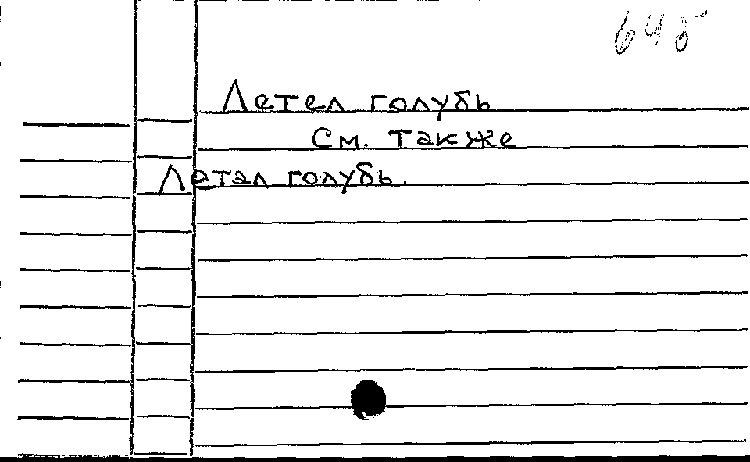 645
Летел голубь
См. также
Летал голубь.